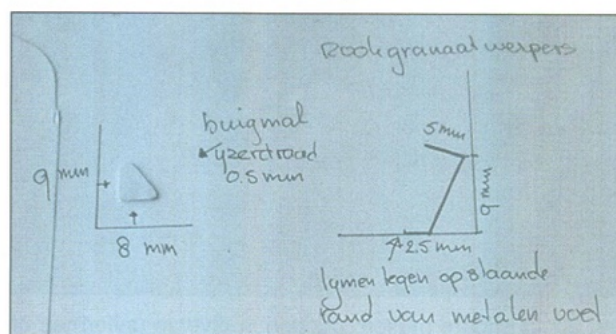 Rookgranaatwerpers
buigmal
yzerdraad
0.5 mm
9 mm
8 mm
5 mm
9 mm
2.5 mm
lymen tegen opstaande
rand van metalen voet